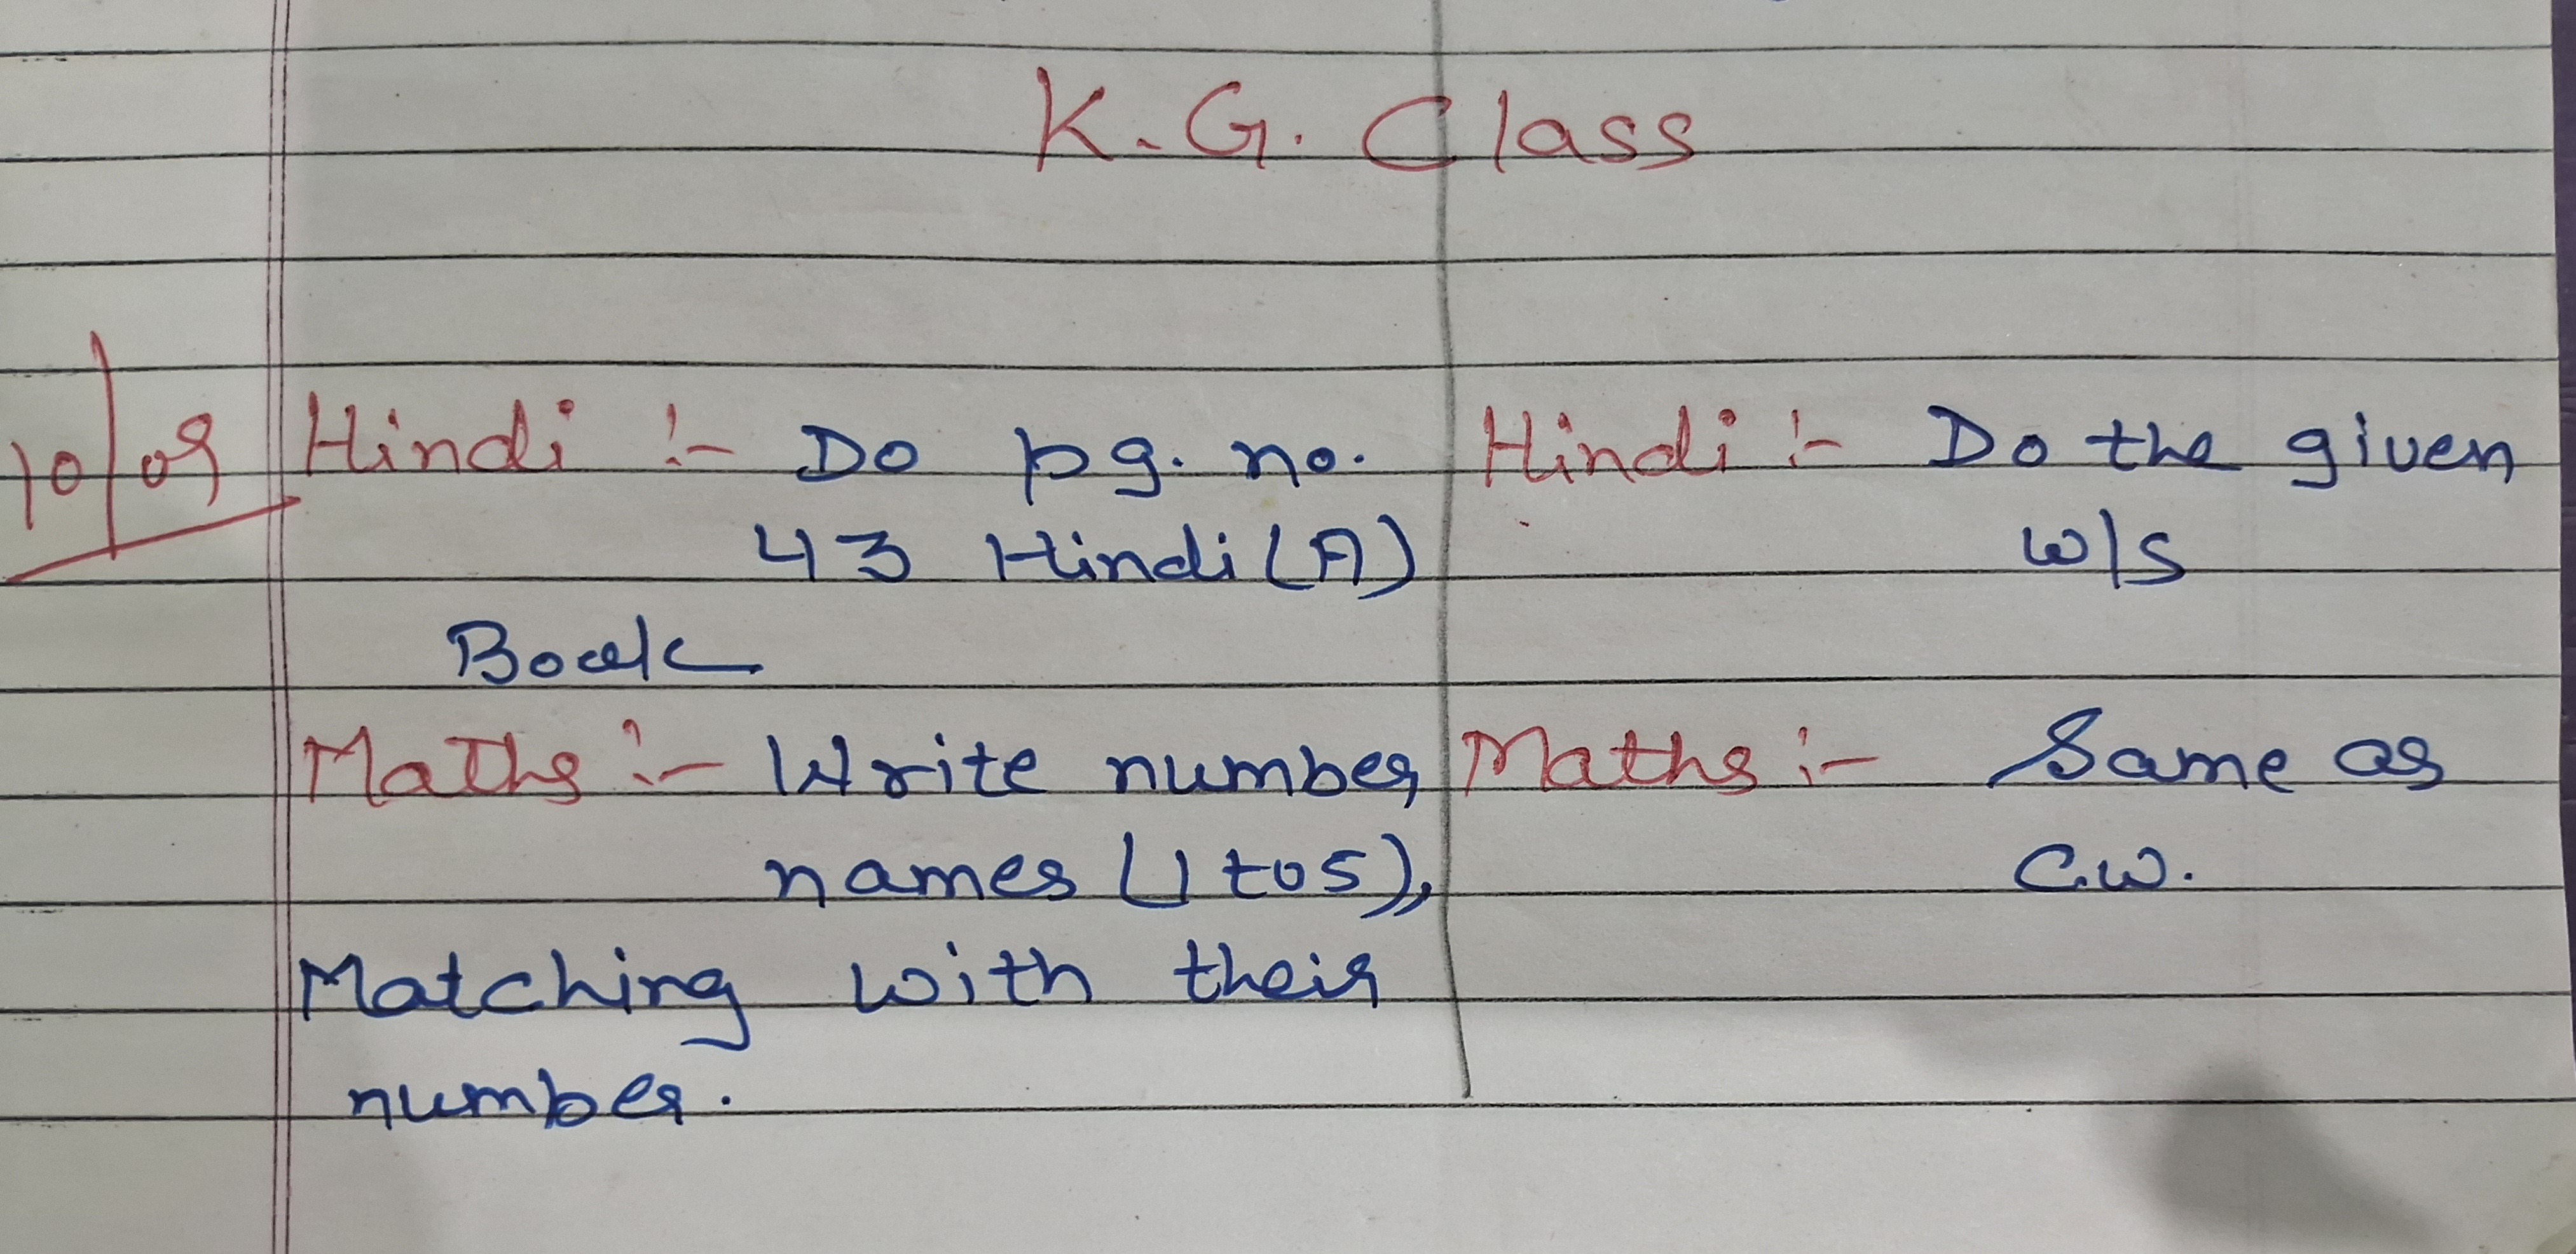 K.G. Class
10/09
Hindi :- Do pg. no.
43 Hindi (A)
Book
Maths :- Write number
names (1 to 5),
Matching with their
number.
Hindi :- Do the given
w/s
Maths :- Same as
C.W.